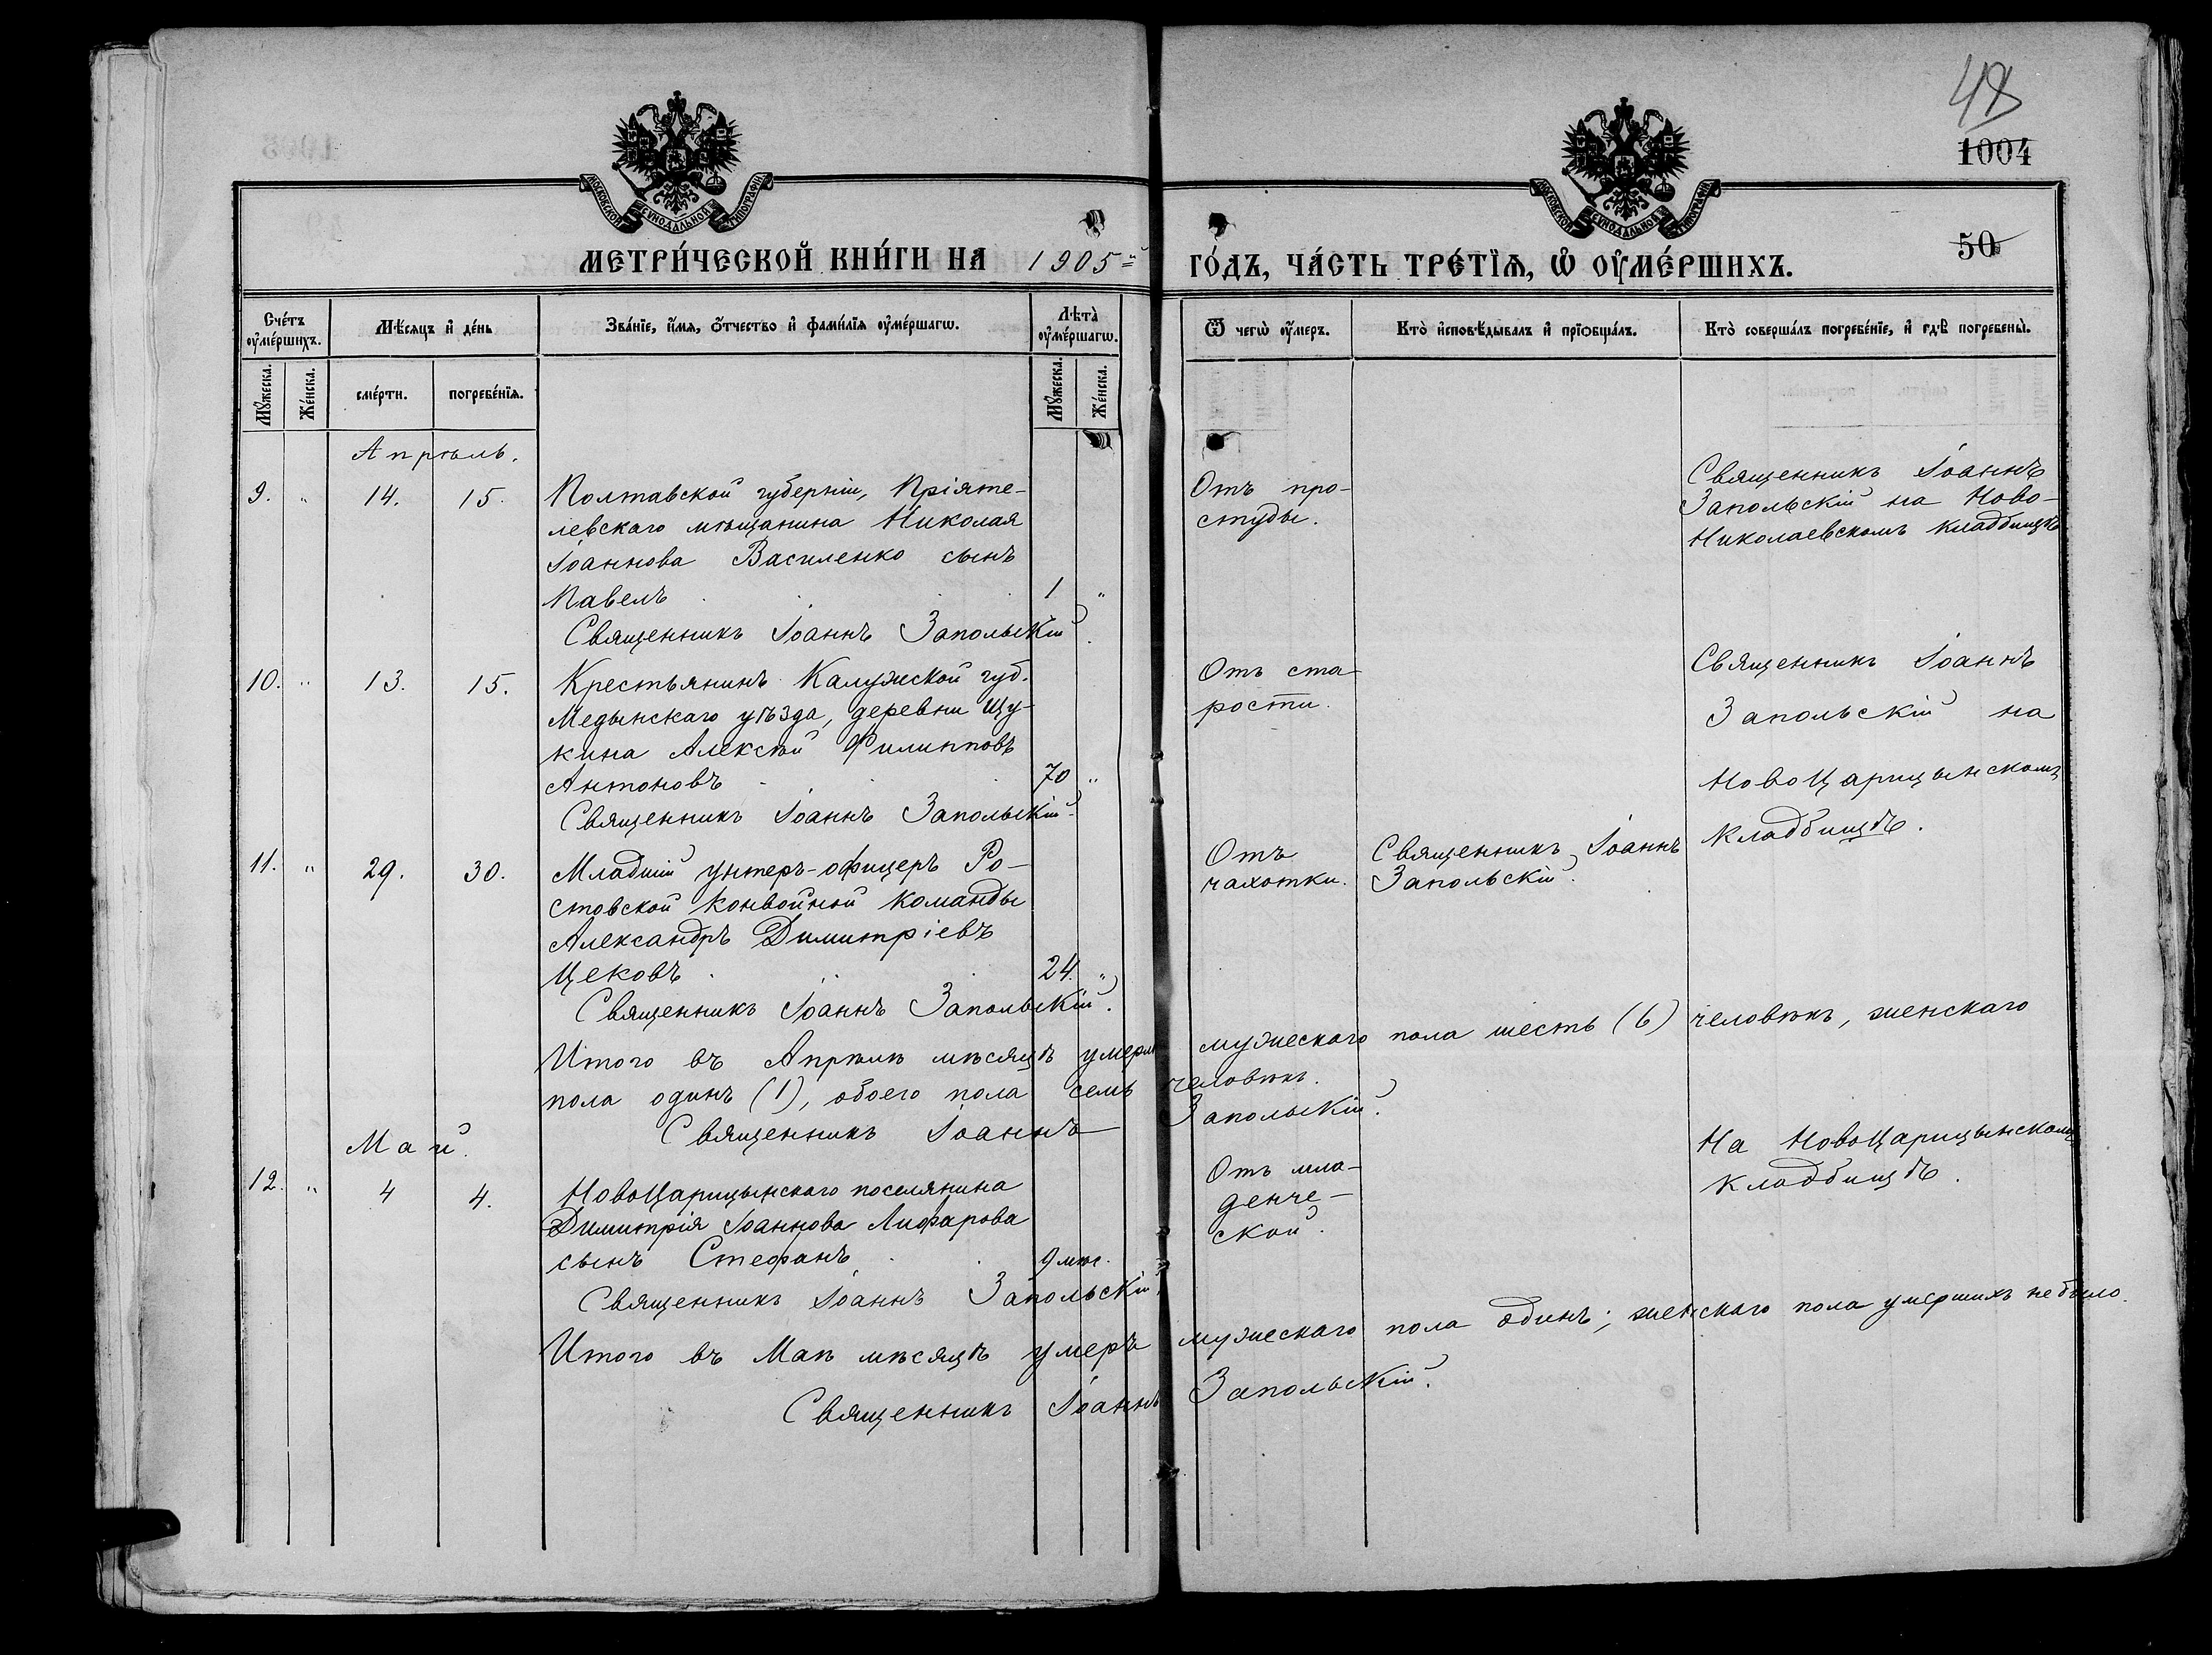 48
1004
50
МОСКОВСКОЙ СѴНОДАЛЬНОЙ ТИПОГРАФІИ
МОСКОВСКОЙ СѴНОДАЛЬНОЙ ТИПОГРАФІИ
МЕТРИ́ЧЕСКОЙ КНИ́ГИ НА 1905й ГО́ДЪ, ЧА́СТЬ ТРЕ́ТЇѦ, Ѡ҆ ОУ҆МЕ́РШИХЪ.
Сче́тъ оу҆ме́ршихъ.
Мѣ́сѧцъ и҆ де́нь
Зва́нїе, и҆́мѧ, ѻ҆́тчество и҆ фами́лїѧ оу҆ме́ршагѡ.
Лѣта̀ оу҆ме́ршагѡ.
Ѿ чегѡ̀ оу҆́меръ.
Кто̀ и҆сповѣ́дывалъ и҆ прїѡбща́лъ.
Кто̀ соверша́лъ погребе́нїе, и҆ гдѣ̀ погребены̀.
Мꙋ́жеска.
Же́нска.
сме́рти.
погребе́нїѧ.
Мꙋ́жеска.
Же́нска.
Апрѣль.
9. " 14. 15. Полтавской губерніи, Пріяте-
левскаго мѣщанина Николая
Іоаннова Василенко сынъ
Павелъ . . . 1 "
Священникъ Іоаннъ Запольскій.
Отъ про-
студы.
Священникъ Іоаннъ
Запольскій на Ново-
Николаевскомъ кладбищѣ
10. " 13. 15. Крестьянинъ Калужской губ.
Медынскаго уѣзда, деревни Щу-
кина Алексѣй Филипповъ
Антоновъ . . . 70 "
Священникъ Іоаннъ Запольскій.
Отъ ста-
рости.
Священникъ Іоаннъ
Запольскій на
НовоЦарицынскомъ
кладбищѣ.
11. " 29. 30. Младшій унтеръ-офицеръ Ро-
стовской конвойной команды
Александръ Димитріевъ
Цековъ . . . 24. "
Священникъ Іоаннъ Запольскій.
Отъ
чахотки.
Священникъ Іоаннъ
Запольскій.
Итого въ Апрѣлѣ мѣсяцѣ умерли мужескаго пола шесть (6) человѣкъ, женскаго
пола одинъ (1), обоего пола семь человѣкъ.
Священникъ Іоаннъ Запольскій.
Май.
12. " 4 4. НовоЦарицынскаго поселянина
Димитрія Іоаннова Лифарова
сынъ Стефанъ . . 9 мѣс.
Священникъ Іоаннъ Запольскій.
Отъ мла-
денче-
ской.
На НовоЦарицынскомъ
кладбищѣ.
Итого въ Маѣ мѣсяцѣ умеръ мужескаго пола одинъ; женскаго пола умершихъ не было.
Священникъ Іоаннъ Запольскій.